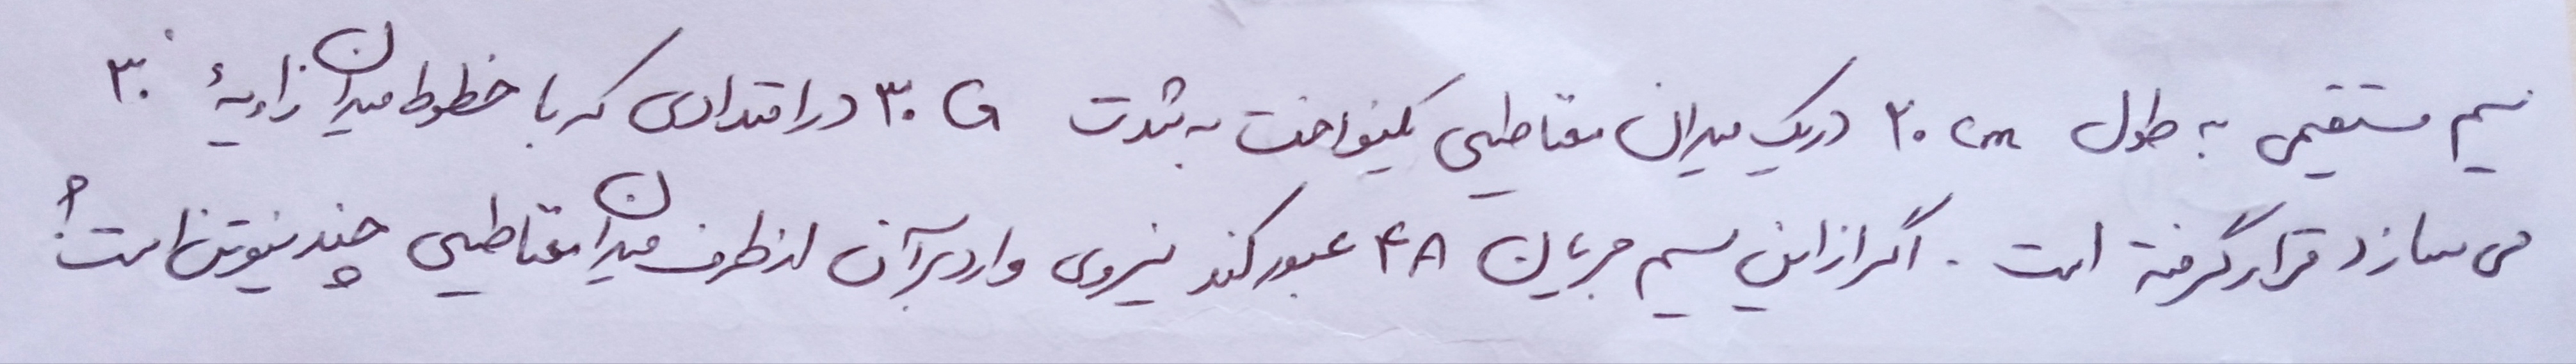 سیم مستقیمی به طول ۲۰ cm در یک میدان مغناطیسی یکنواخت به شدت ۳۰ G در امتدادی که با خطوط میدان زاویهٔ ۳۰°
می سازد قرار گرفته است. اگر از این سیم جریان ۴A عبور کند نیروی وارد بر آن از طرف میدان مغناطیسی چند نیوتن است؟